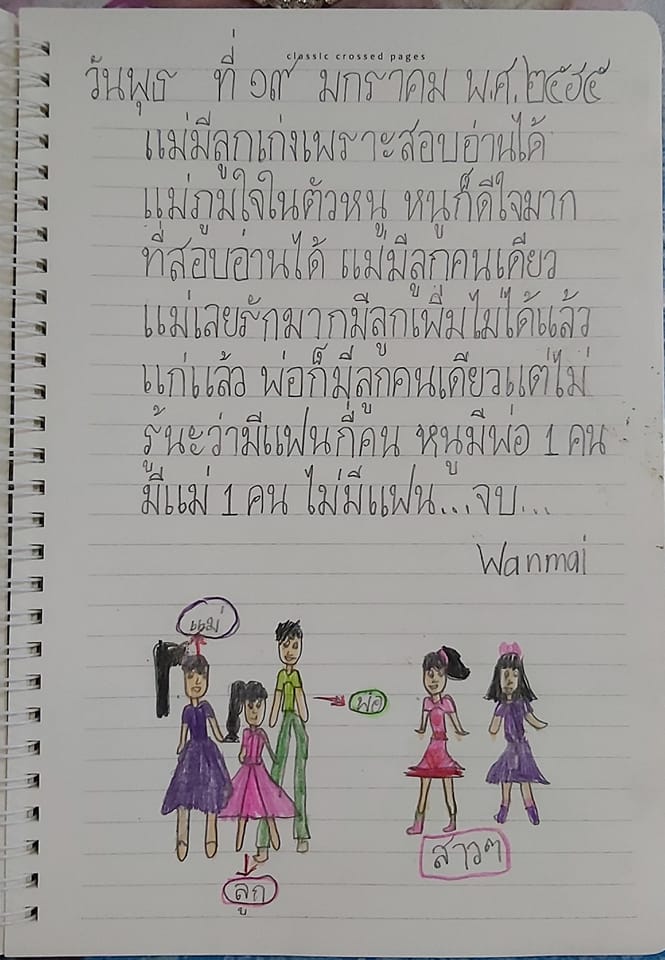 classic crossed pages
วันพุธ ที่ ๑๙ มกราคม พ.ศ.๒๕๖๕
แม่มีลูกเก่งเพราะสอบอ่านได้
แม่ภูมิใจในตัวหนู หนูก็ดีใจมาก
ที่สอบอ่านได้ แม่มีลูกคนเดียว
แม่เลยรักมากมีลูกเพิ่มไม่ได้แล้ว
แก่แล้ว พ่อก็มีลูกคนเดียวแต่ไม่
รู้นะว่ามีแฟนกี่คน หนูมีพ่อ 1 คน
มีแม่ 1 คน ไม่มีแฟน...จบ...
Wanmai
แม่
พ่อ
สาวๆ
ลูก